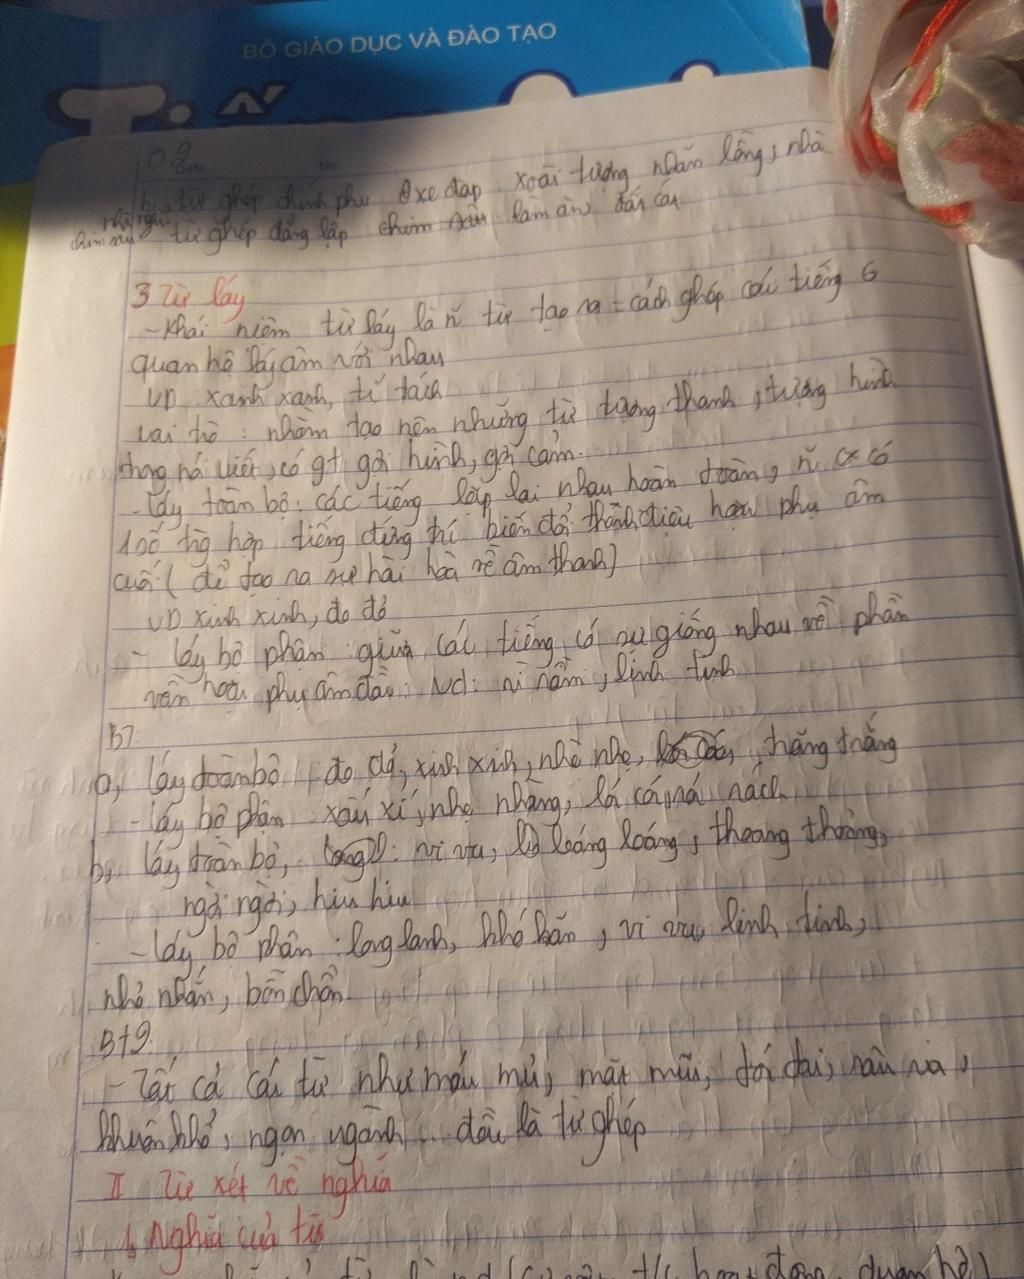 BỘ GIÁO DỤC VÀ ĐÀO TẠO
Tiến
Date No
b, từ ghép chính phụ xe đạp: xoài tượng nhãn lồng, nhà
từ ghép đẳng lập chim sâu làm ăn, đất cát
3 Từ láy
- Khái niệm từ láy là n~ từ tạo ra = cách ghép các tiếng có
quan hệ láy âm với nhau
VD: xanh xanh, tí tách
vai trò: nhằm tạo nên những từ tượng thanh, tượng hình
trong nói viết, có gt gợi hình, gợi cảm.
- Láy toàn bộ: các tiếng lặp lại nhau hoàn toàn, có
1 số trg hợp tiếng đứng trc biến đổi thanh điệu hoặc phụ âm
cuối (để tạo ra sự hài hoà về âm thanh)
VD xinh xinh, đo đỏ
- láy bộ phận: giữa các tiếng có sự giống nhau về phần
vần hoặc phụ âm đầu: Vd: rì rầm, linh tinh
B7:
a, láy toàn bộ: đo đỏ, xinh xinh, nhè nhẹ, trăng trắng
- láy bộ phận: xấu xí, nhẹ nhàng, nách
b, láy toàn bộ: vi vu, loáng loáng, thoang thoảng,
ngời ngời, hiu hiu
- láy bộ phận: long lanh, khó khăn, vi vu, linh tinh,
nhỏ nhắn, bồn chồn
Bt9
- Tất cả các từ như máu mủ, mặt mũi, râu ria,
khuôn khổ, ngọn ngành... đều là từ ghép
II Từ xét về nghĩa
1, Nghĩa của từ